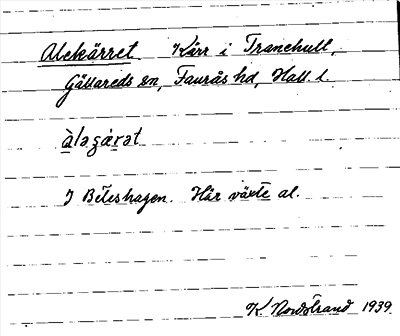 Alekärret. Kärr i Tranehult,
Gällareds sn, Faurås hd, Hall. l.
àləɕǽrət
I Beteshagen. Här växte al.
K. Nordstrand 1939